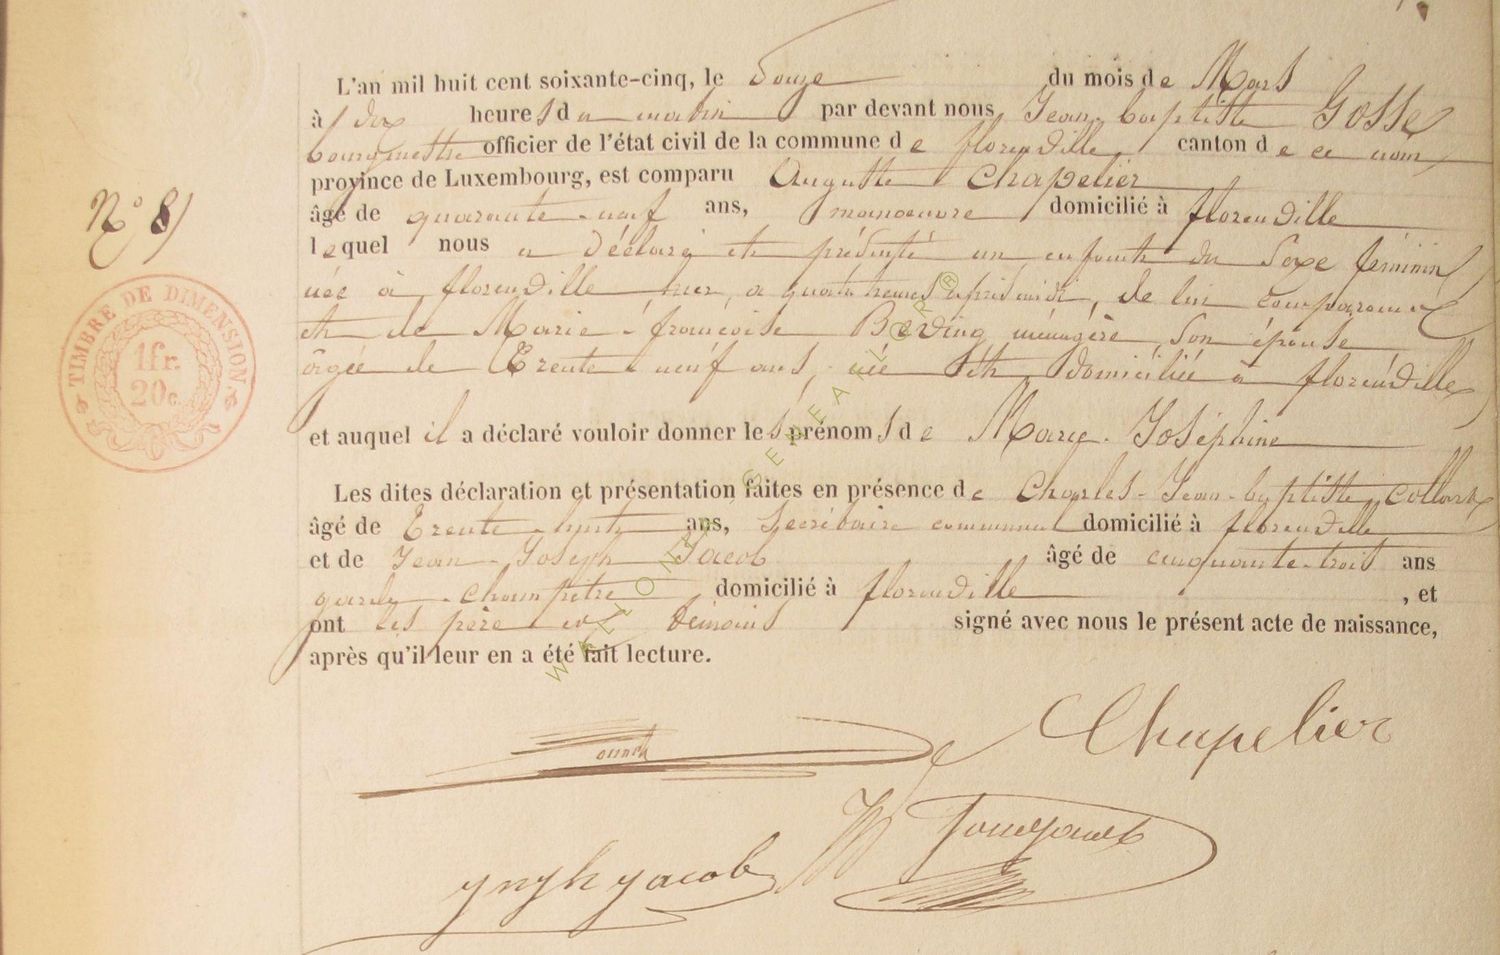 L'an mil huit cent soixante-cinq, le Douze du mois de Mars
à dix heures du matin par devant nous Jean-baptiste Gosse
bourgmestre officier de l'état civil de la commune de florenville, canton de ce nom
province de Luxembourg, est comparu Auguste Chapelier
N° 8)
âgé de quarante-neuf ans, manoeuvre domicilié à florenville
lequel nous a déclaré et présenté un enfant du Sexe féminin
née à florenville hier, à quatre heures après midi, de lui comparant
TIMBRE DE DIMENSION
1 fr. 20c.
et de Marie-françoise ménagère, Son épouse
âgée de trente-neuf ans, née et domiciliée à florenville
et auquel il a déclaré vouloir donner les prénoms de Marie-Joséphine
Les dites déclaration et présentation faites en présence de Charles-Jean-baptiste Collard
âgé de trente-huit ans, Secrétaire communal domicilié à florenville
et de Jean-Joseph Jacob âgé de cinquante-trois ans
garde-champêtre domicilié à florenville , et
ont les père et témoins signé avec nous le présent acte de naissance,
après qu'il leur en a été fait lecture.
WALLONIE GENEALOGIE
Chapelier
Jacob